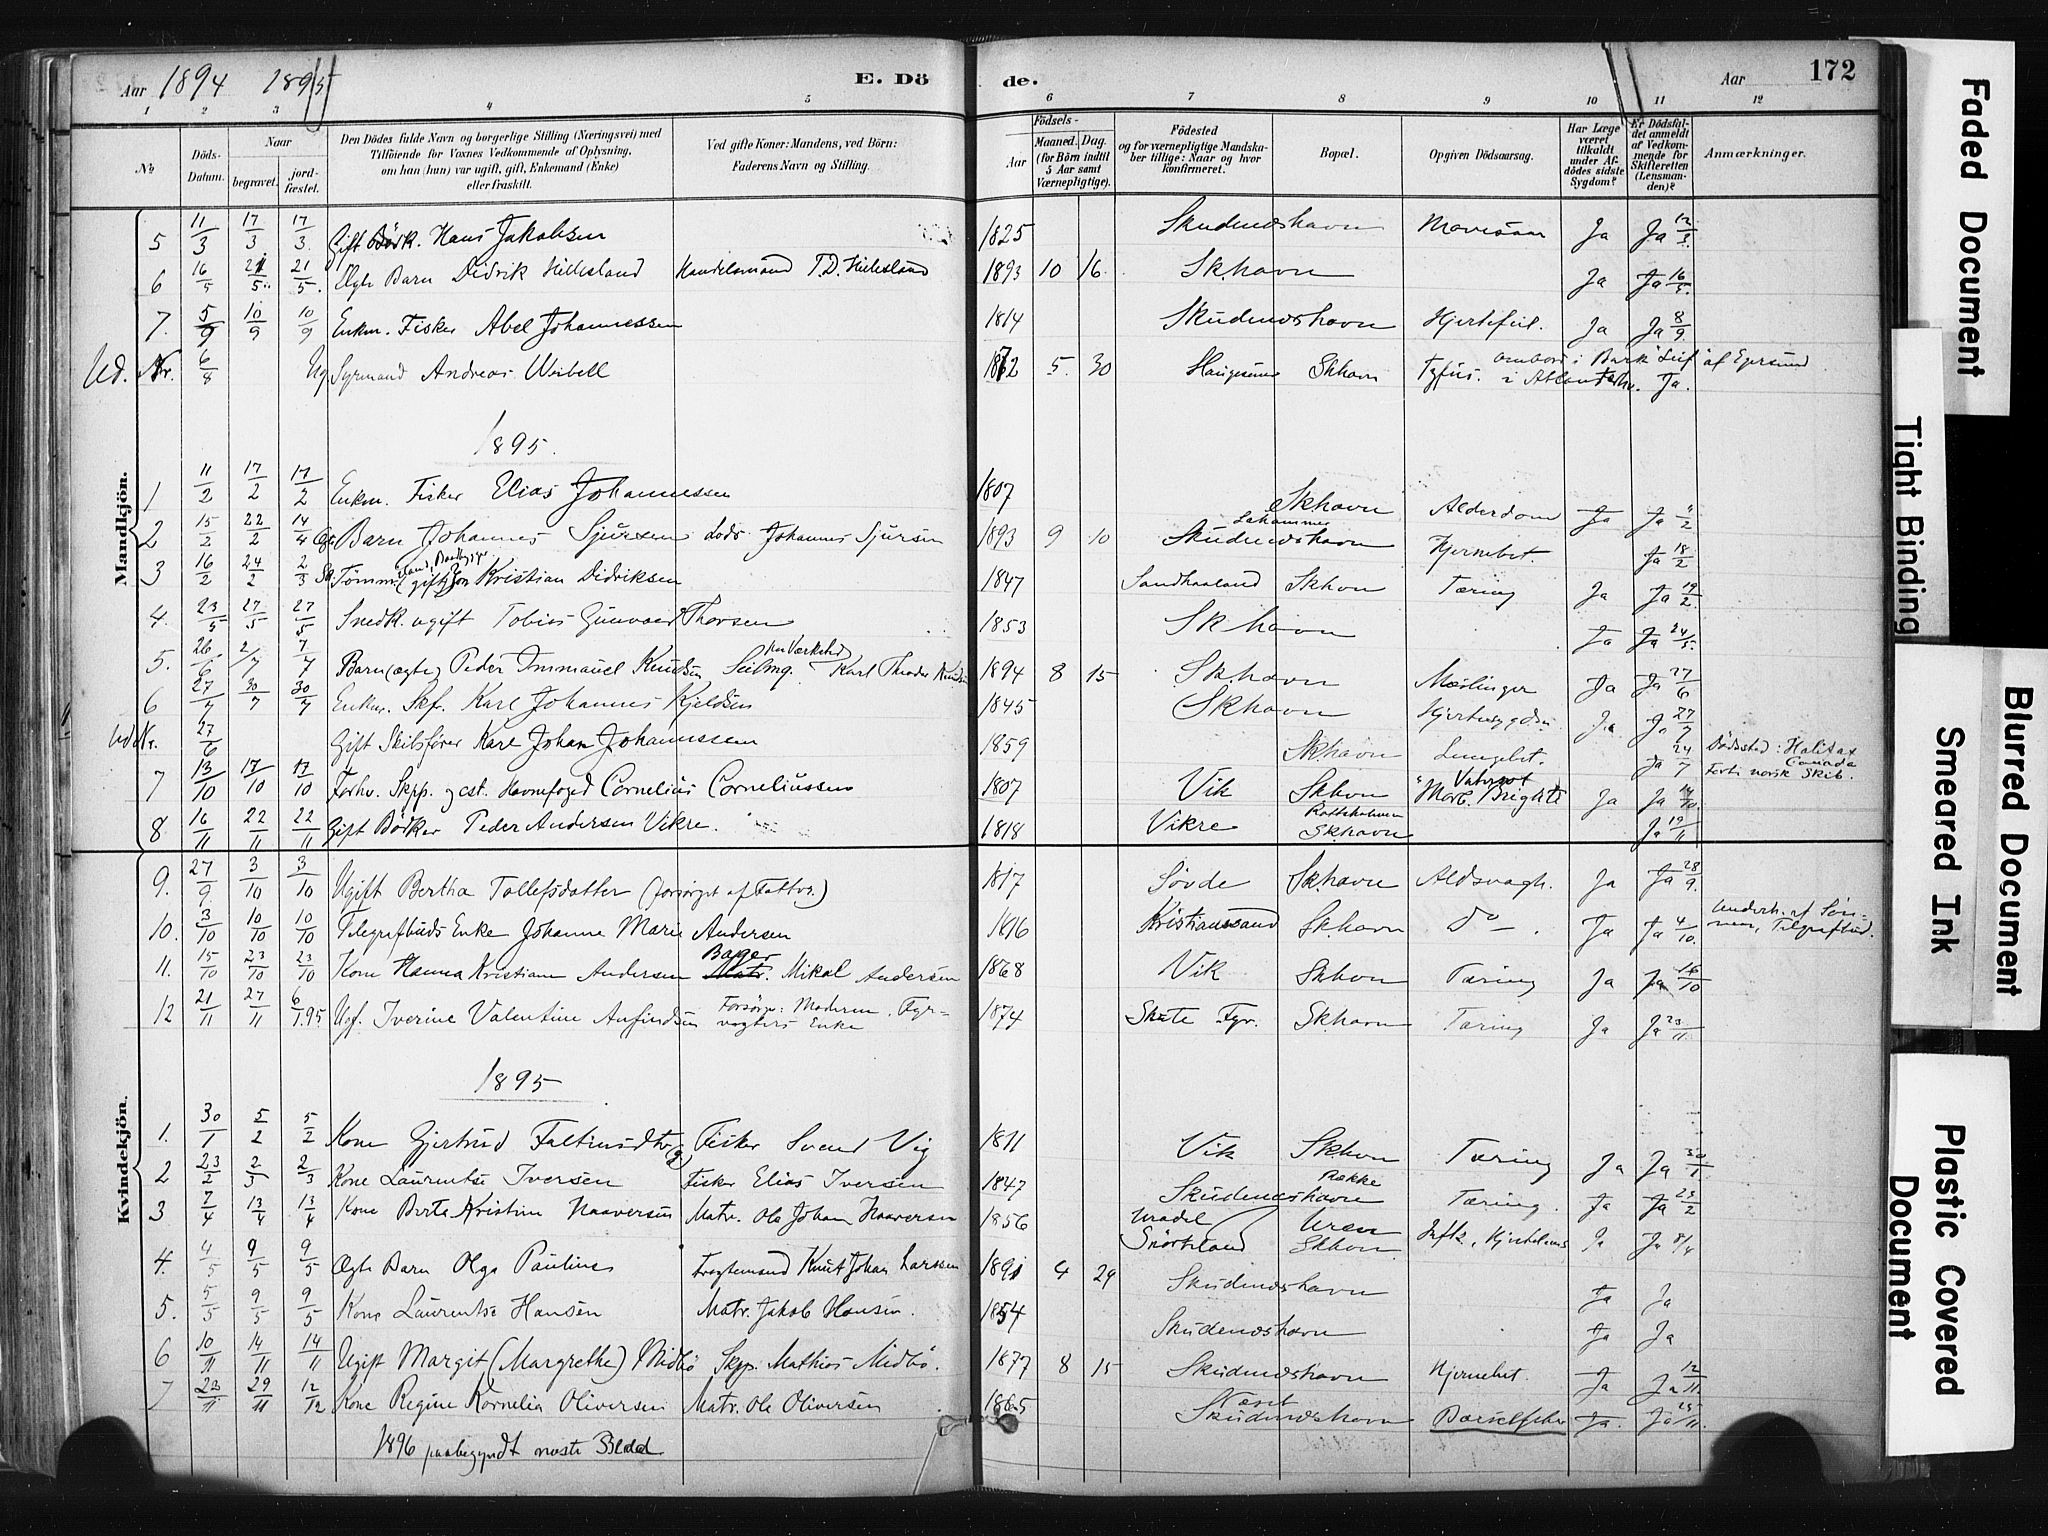 Aar 1894 1895 E. Dö de. Aar 172
1 2 3 4 5 6 7 8 9 10 11 12
No. Döds-Datum. Naar begravet. jord-fæstet. Den Dödes fulde Navn og borgerlige Stilling (Næringsvei) med Tilföiende for Voxnes Vedkommende af Oplysning, om han (hun) var ugift, gift, Enkemand (Enke) eller fraskilt. Ved gifte Koner: Mandens, ved Börn: Faderens Navn og Stilling. Födsels- Aar Maaned. Dag. (for Börn indtil 5 Aar samt Værnepligtige). Födested og for værnepligtige Mandska-ber tillige: Naar og hvor konfirmeret. Bopæl. Opgiven Dödsaarsag. Har Læge været tilkaldt under Af-dödes sidste Sygdom? Er Dödsfal-det anmeldt af Vedkom-mende for Skifteretten (Lensman-den)? Anmærkninger.
Mandkjön.
5 11/3 17/3 17/3 Gift Bødk. Hans Jakobsen 1825 Skudeneshavn Ja Ja 12/3
6 16/5 21/5 21/5 Ægte Barn Didrik Hillesland Handelsmand T.D. Hillesland 1893 10 16 Skhavn Ja Ja 16/5
7. 5/9 10/9 10/9 Enkm. Fisker Abel Johannessen 1814 Skudeneshavn Hjertefeil. Ja Ja 8/9
Ud. Nr. 6/8 Ug. Syrmand Andreas Weibell 1872 5. 30 Haugesund Skhavn Tyfus. ombord i Bark "Leif" af Egersund i Atlanterhv. Ja.
1895.
1 11/2 17/2 17/2 Enkm. Fisker Elias Johannessen 1807 Skhavn Alderdom Ja Ja 11/2
2 15/2 22/2 14/4 Ægte Barn Johannes Sjursen Lods Johannes Sjursen 1893 9 10 Lahammer Skudeneshavn Hjernebet. Ja 18/2
3 16/2 24/2 2/3 Tømm. (gift) Kristian Didriksen 1847 Sandhaaland Skhavn Tæring Ja Ja 19/2
4. 23/5 27/5 27/5 Snedk. ugift Tobias Gunvaer Thorsen 1853 Skhavn Ja Ja 24/5
5. 26/6 2/7 7/7 Barn (ægte) Peder Immanuel Knudsen Seilmg. Karl Theodor Knudsen 1894 8 15 Skhavn Meslinger Ja Ja 27/6
6 27/7 30/7 30/7 Enkm. Skf. Karl Johannes Kjeldsen 1845 Skhavn Hjertesygdom Ja Ja 27/7
Ud Nr. 27/6 Gift Skibsfører Karl Johan Johannessen 1859 Skhavn Lungebet. Ja 24/7 Dødssted: Halifax Canada Forti norsk Skib.
7 13/10 17/10 17/10 Forhv. Skpp. og cst. Havnefoged Cornelius Corneliussen 1807 Vik Skhavn Vatersot Morb. Brightii Ja Ja 14/10
8 16/11 22/11 22/11 Gift Bødker Peder Andersen Vikre. 1818 Vikre Skhavn Ja 19/11
Kvindekjön.
9. 27/9 3/10 3/10 Ugift Bertha Tollefsdatter (forsørget af Fattv.) 1817 Søvde Skhavn Aldsvagh. Ja Ja 28/9
10. 3/10 10/10 10/10 Telegrafbuds Enke Johanne Marie Andersen 1816 Kristianssand Skhavn Do Ja Ja 4/10. Underh. af Søn-nen, Telgrafbud.
11. 15/10 23/10 23/10 Kone Hanna Kristiane Andersen Bager Matr. Mikal Andersen 1868 Vik Skhavn Tæring Ja Ja 16/10
12 21/11 27/11 6/1.95 Ugf. Iverine Valentine Anfindsen Forsørg: Moderen. Fyr-vogters Enke 1874 Skute Fyr. Skhavn Tæring Ja Ja 23/11
1895
1. 30/1 5/2 5/2 Kone Gjertrud Faltinsdtr Fisker Svend Vig 1811 Vik Skhavn Tæring Ja Ja 30/1
2 23/2 2/3 2/3 Kone Laurentse Iversen Fisker Elias Iversen 1847 Skudeneshavn Tæring. Ja Ja 23/2
3 7/4 13/4 13/4 Kone Berta Kristine Haaversen Matr. Ole Johan Haaversen 1856 Skhavn Ja Ja 8/4
4. 4/5 9/5 9/5 Ægte Barn Olga Pauline Fragtemand Knut Johan Larssen 1891 4 29 Skudeneshavn Ja Ja
5. 5/5 9/5 9/5 Kone Laurentse Hansen Matr. Jakob Hansen. 1854 Skudeneshavn Ja Ja
6 10/11 14/11 14/11 Ugift Margit (Margrethe) Midbö Skpp. Mathias Midbö. 1877 8 15 Skudeneshavn Hjernebet. Ja Ja 12/11
7 23/11 29/11 12/12 Kone Regine Kornelia Oliversen Matr. Ole Oliversen 1865 Næset Skudeneshavn Barselfeber Ja. Ja 25/11.
1896 paabegyndt næste Blad
Faded Document
Tight Binding
Blurred Document
Smeared Ink
Plastic Covered Document